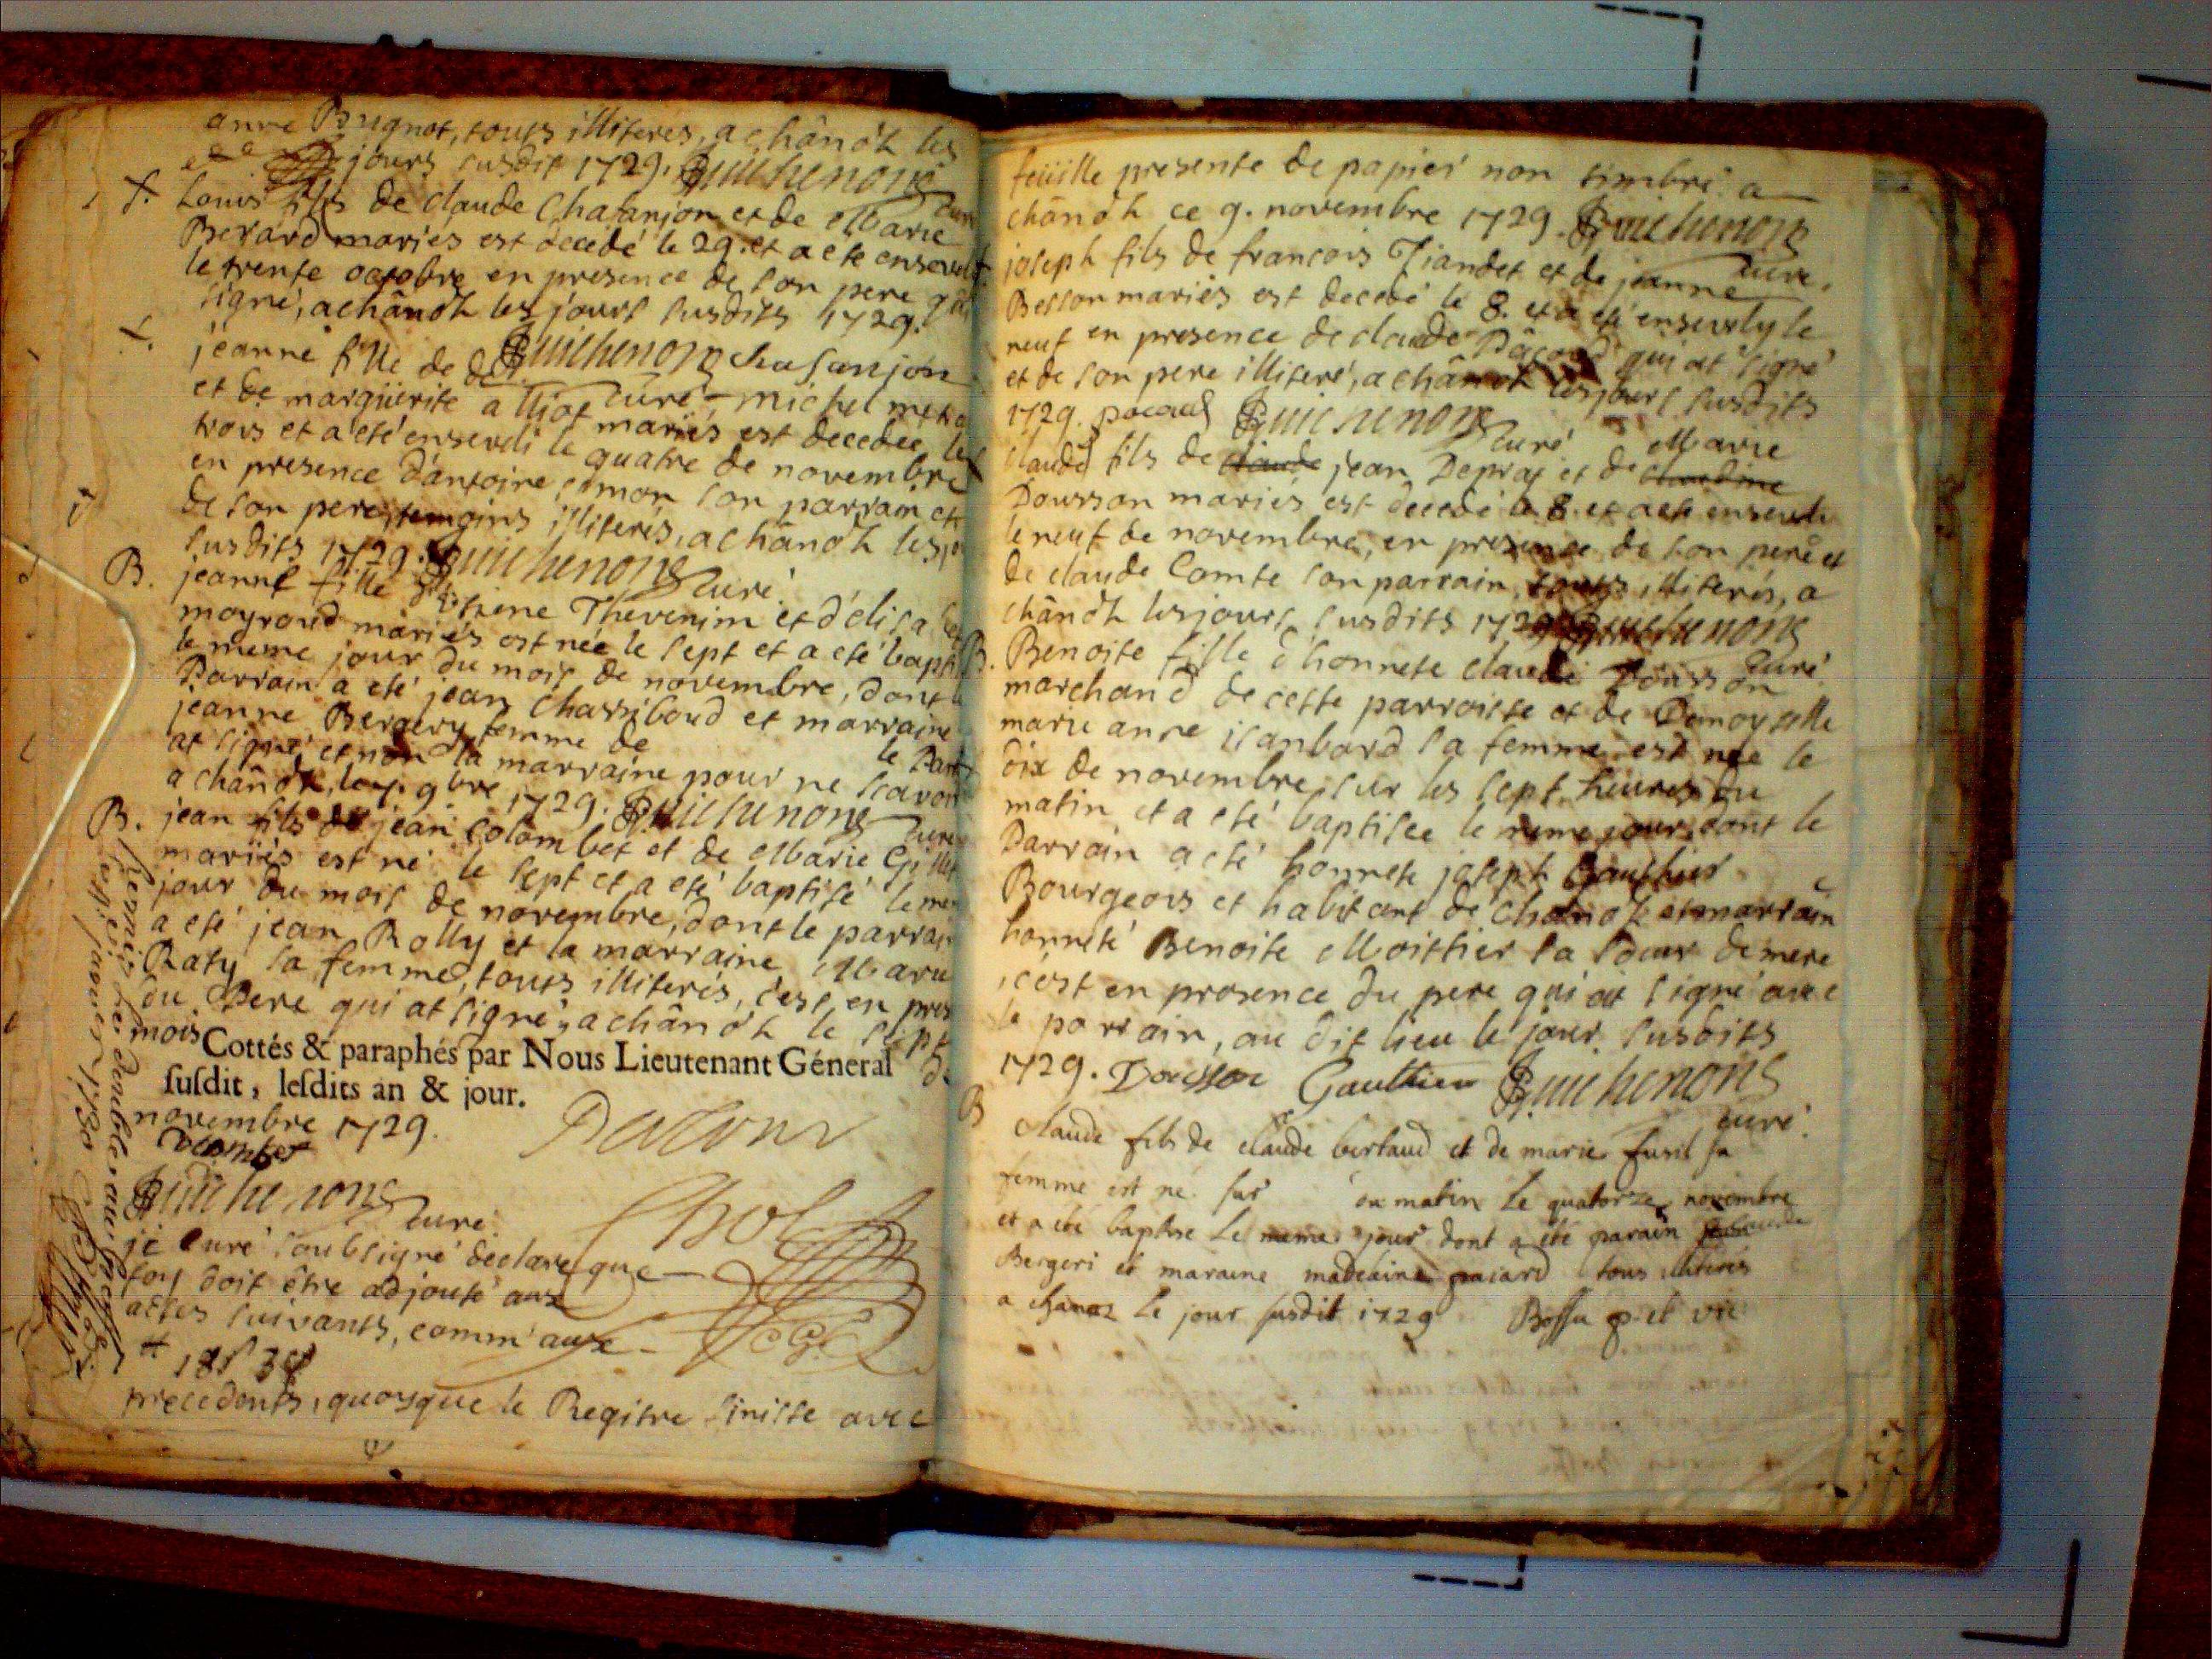 anne Bugnot, touts illiterés, a chânoz les
jours susdit 1729. Guichenons
curé
†. Louis fils de claude Chasanjon et de Marie
Berard mariés est decedé le 29. et a eté enseveli
le trente octobre en presence de son pere qui
signé, a chânoz les jours susdits 1729.
Guichenons chasanjon
curé
†. jeanne fille de michel
et de margüerite alliot mariés est decedée le
trois et a eté enseveli le quatre de novembre
en presence d'antoine simon son parrain et
de son pere, temoins illiterés, a chânoz les
susdits 1729. Guichenons
curé.
B. jeanne fille d'Etiene Thevenin et d'élisa
moyroud mariés est née le sept et a eté bapti
le meme jour du mois de novembre, dont le
Parrain a eté jean Chassiboud et marraine
jeanne Bergery femme de le Par
at signé et non la marraine pour ne scavoir
a chânoz, le 7. 9bre 1729. Guichenons
curé
B. jean fils de jean Colombet et de Marie
mariés est né le sept et a eté baptisé le me
jour du mois de novembre, dont le parrain
a eté jean Rolly et la marraine Marie
Raty sa femme, touts illiterés, c'est en pres
du Pere qui at signé, a chânoz le sept
du
mois
Cottés & paraphés par Nous Lieutenant Géneral
susdit, lesdits an & jour.
novembre 1729.
colombet
Guichenons
curé.
je curé soubsigné declare que
foy doit être adjouté aux
actes suivants, comm' aux
precedents, quoyque le Regitre finisse avec
janvier 1730
feüille presente de papier non timbré. a
chânoz ce 9. novembre 1729. Guichenons
curé.
joseph fils de francois Tiandet et de jeanne
Besson mariés est decedé le 8. et a eté ensevely le
neuf en presence de claude Pacoud qui at signé
et de son pere illiteré, a chânoz les jours susdits
1729. pacoud Guichenons
curé
Marie
claude fils de claude jean Depras et de claudine
Dousson mariés est decedé le 8. et a eté enseveli
le neuf de novembre, en presence de son pere et
de claude Comte son parrain, touts illiterés, a
chânoz les jours susdits 1729. Guichenons
curé.
B. Benoite fille d'honnete claude Dousson
marchand de cette parroisse et de Demoyselle
marie anne isanbard sa femme est née le
dix de novembre sur les sept heures du
matin et a eté baptisée le meme jour, dont le
Parrain a eté honnete joseph Gauthier
Bourgeois et habitant de Chanoz et marrain
honnete Benoite Moittier sa soeur de mere
, c'est en presence du pere qui at signé avec
le parrain, au dit lieu le jour susdits
1729. Dousson Gauthier Guichenons
curé.
B claude fils de claude bertaud et de marie fusil sa
femme est né sur du matin le quatorze novembre
et a été baptise le meme jour dont a été parain claude
Bergeri et maraine madelaine paiard tous illiterés
a chanoz le jour susdit 1729 Bossu p. et vic